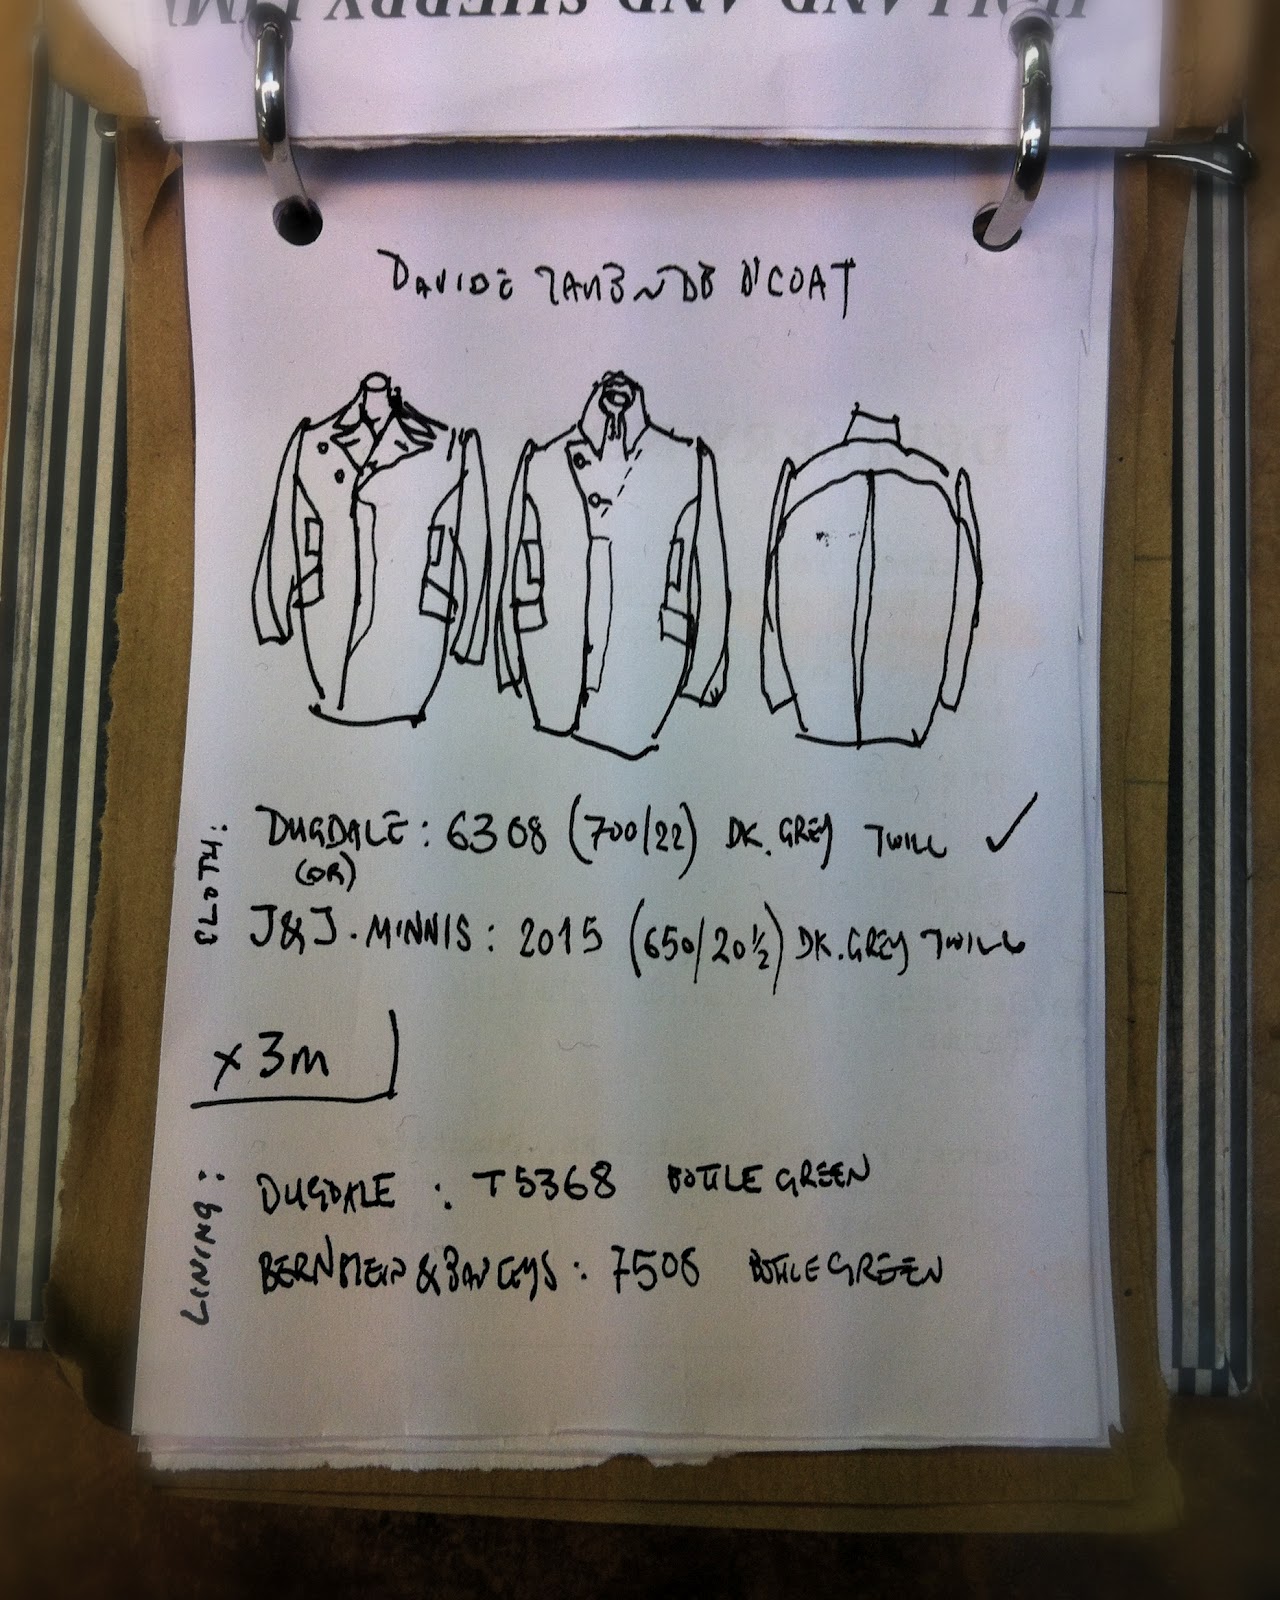 HOLLAND AND SHERRY LIM
DAVIDE DB O'COAT
CLOTH:
DUGDALE: 6308 (700/22) DK. GREY TWILL ✓
(OR)
J&J. MINNIS: 2015 (650/20½) DK. GREY TWILL
x 3m
LINING:
DUGDALE : T5368 BOTTLE GREEN
BERNSTEIN & BANLEYS : 7506 BOTTLE GREEN